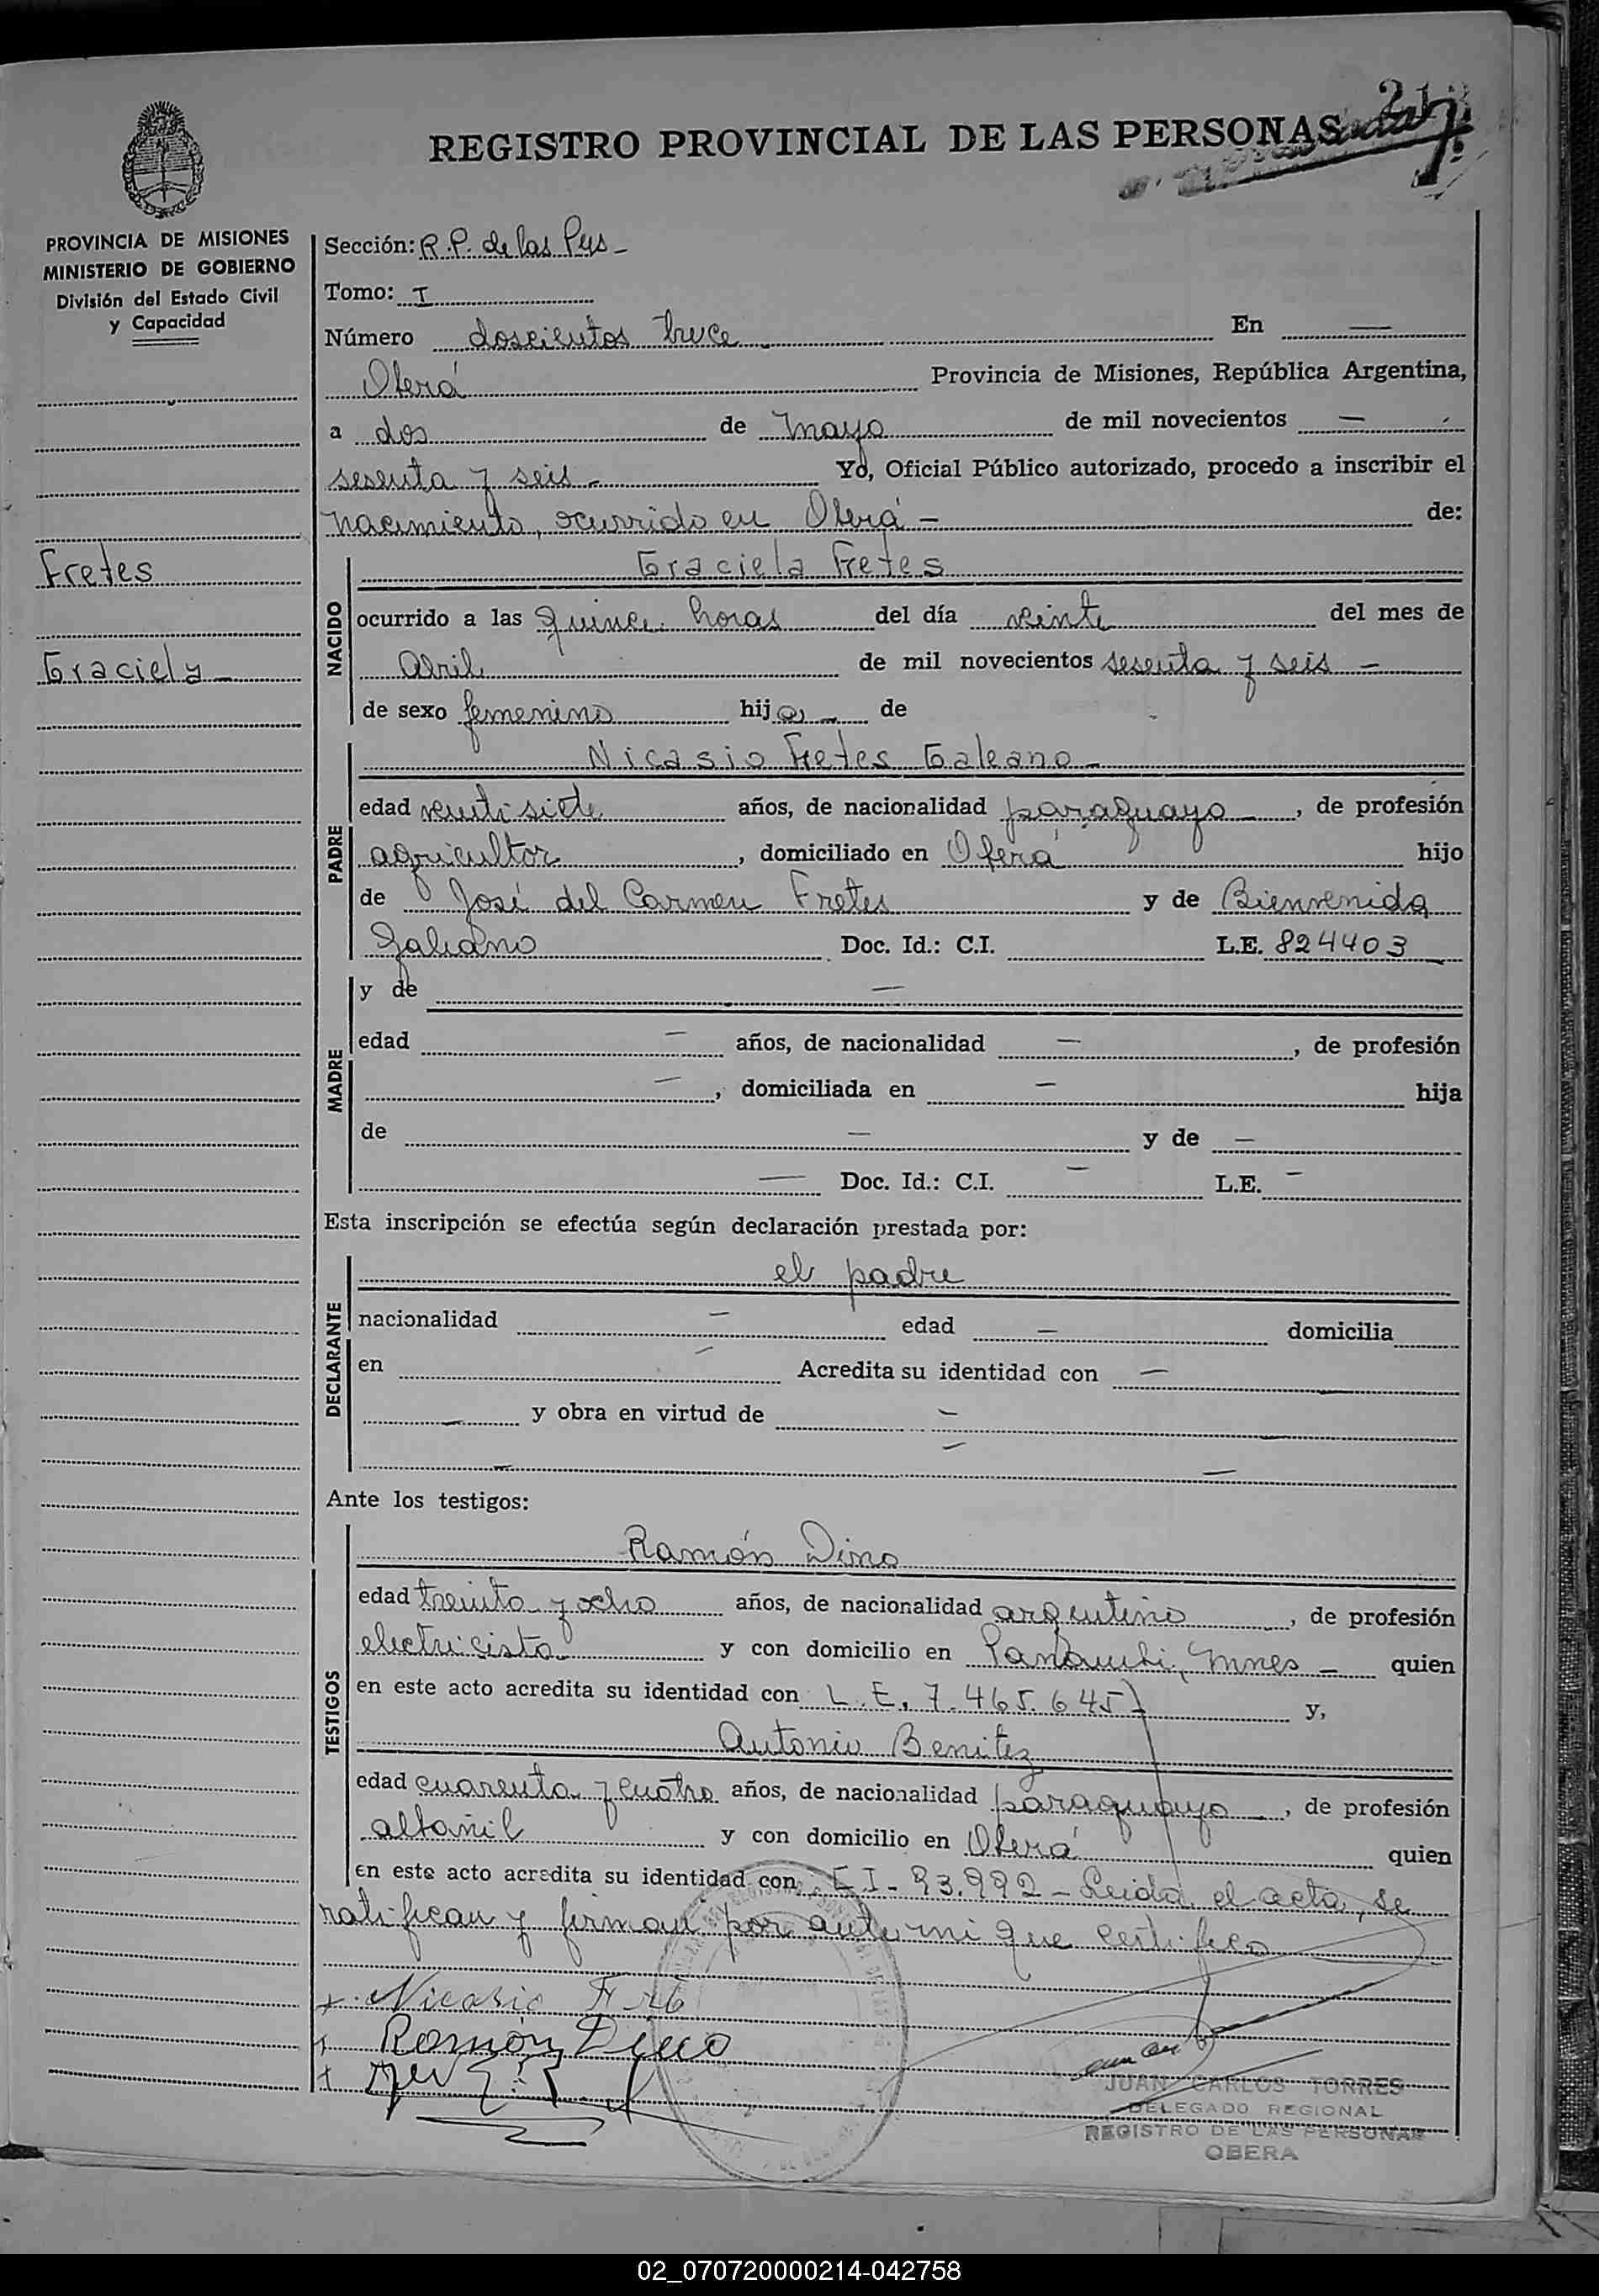 213
REGISTRO PROVINCIAL DE LAS PERSONAS
PROVINCIA DE MISIONES
MINISTERIO DE GOBIERNO
División del Estado Civil
y Capacidad
Fretes
Graciela -
Sección: R.P. de las Pers -
Tomo: I
Número doscientos trece - En —
Oberá Provincia de Misiones, República Argentina,
a dos de mayo de mil novecientos —
sesenta y seis - Yo, Oficial Público autorizado, procedo a inscribir el
nacimiento, ocurrido en Oberá - de:
NACIDO
Graciela Fretes
ocurrido a las quince horas del día veinte del mes de
Abril de mil novecientos sesenta y seis -
de sexo femenino hija - de
PADRE
Nicasio Fretes Galeano -
edad veintisiete años, de nacionalidad paraguayo -, de profesión
agricultor, domiciliado en Oberá hijo
de José del Carmen Fretes y de Bienvenida
Galeano Doc. Id.: C.I. L.E. 824403 -
MADRE
y de —
edad — años, de nacionalidad —, de profesión
—, domiciliada en — hija
de — y de —
— Doc. Id.: C.I. — L.E. —
Esta inscripción se efectúa según declaración prestada por:
DECLARANTE
el padre
nacionalidad — edad — domicilia
en — Acredita su identidad con —
— y obra en virtud de —
Ante los testigos:
TESTIGOS
Ramón Dino
edad treinta y ocho años, de nacionalidad argentino, de profesión
electricista y con domicilio en Panambi, Mnes - quien
en este acto acredita su identidad con L.E. 7.465.645 y,
Antonio Benitez
edad cuarenta y cuatro años, de nacionalidad paraguayo -, de profesión
albañil y con domicilio en Oberá quien
en este acto acredita su identidad con C.I - 93.992 - Leida el acta, se
ratifican y firman por ante mi que certifico
x. Nicasio
x Ramón Dino
x
JUAN CARLOS TORRES
DELEGADO REGIONAL
REGISTRO DE LAS PERSONAS
OBERA
02_070720000214-042758